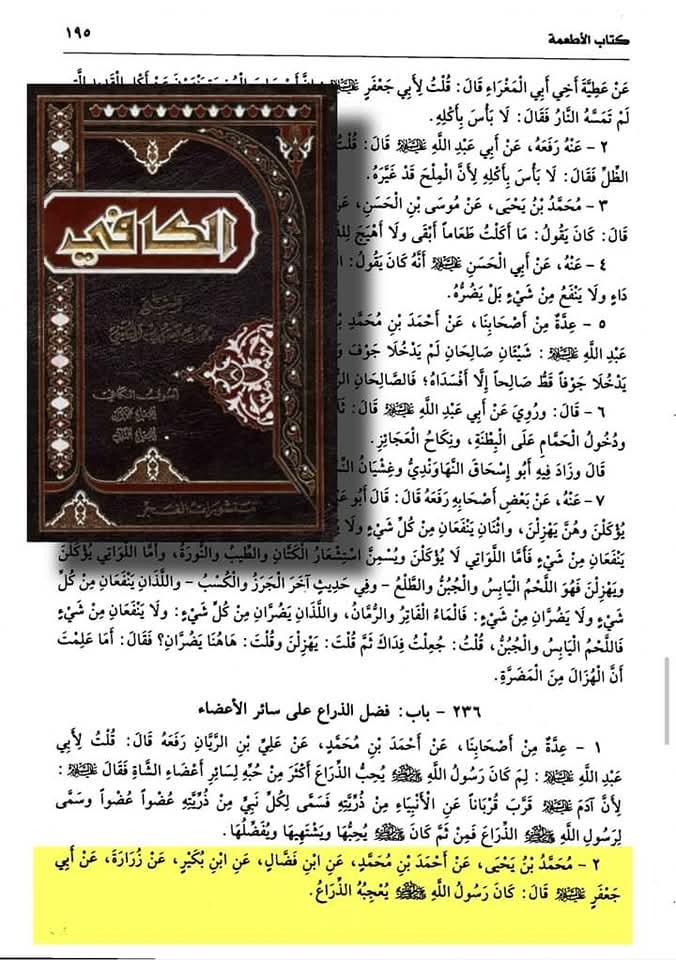 كتاب الأطعمة
١٩٥
عَنْ عَطِيَّةَ أَخِي أَبِي الْمَغْرَاءِ قَالَ: قُلْتُ لِأَبِي جَعْفَرٍ عليه السلام
لَمْ تَمَسَّهُ النَّارُ فَقَالَ: لَا بَأْسَ بِأَكْلِهِ.
٢ - عَنْهُ رَفَعَهُ، عَنْ أَبِي عَبْدِ اللَّهِ عليه السلام قَالَ: قُلْتُ
الظِّلِّ فَقَالَ: لَا بَأْسَ بِأَكْلِهِ لِأَنَّ الْمِلْحَ قَدْ غَيَّرَهُ.
٣ - مُحَمَّدُ بْنُ يَحْيَى، عَنْ مُوسَى بْنِ الْحَسَنِ، عَنْ
قَالَ: كَانَ يَقُولُ: مَا أَكَلْتُ طَعَاماً أَبْقَى وَلَا أَهْيَجَ
٤ - عَنْهُ، عَنْ أَبِي الْحَسَنِ عليه السلام أَنَّهُ كَانَ يَقُولُ:
دَاءٍ وَلَا يَنْفَعُ مِنْ شَيْءٍ بَلْ يَضُرُّهُ.
٥ - عِدَّةٌ مِنْ أَصْحَابِنَا، عَنْ أَحْمَدَ بْنِ مُحَمَّدِ
عَبْدِ اللَّهِ عليه السلام: شَيْئَانِ صَالِحَانِ لَمْ يَدْخُلَا جَوْفَ
يَدْخُلَا جَوْفاً قَطُّ صَالِحاً إِلَّا أَفْسَدَاهُ؛ فَالصَّالِحَانِ
٦ - قَالَ: وَرُوِيَ عَنْ أَبِي عَبْدِ اللَّهِ عليه السلام قَالَ:
وَدُخُولُ الْحَمَّامِ عَلَى الْبِطْنَةِ، وَنِكَاحُ الْعَجَائِزِ.
قَالَ وَزَادَ فِيهِ أَبُو إِسْحَاقَ النَّهَاوَنْدِيُّ وَغِشْيَانُ
٧ - عَنْهُ، عَنْ بَعْضِ أَصْحَابِهِ رَفَعَهُ قَالَ: قَالَ أَبُو
يُؤْكَلْنَ وَهُنَّ يَهْزِلْنَ، وَاثْنَانِ يَنْفَعَانِ مِنْ كُلِّ شَيْءٍ
يَنْفَعَانِ مِنْ شَيْءٍ فَأَمَّا اللَّوَاتِي لَا يُؤْكَلْنَ وَيُسْمِنَّ اسْتِشْعَارُ الْكَتَّانِ وَالطِّيبُ وَالنُّورَةُ، وَأَمَّا اللَّوَاتِي يُؤْكَلْنَ
وَيَهْزِلْنَ فَهُوَ اللَّحْمُ الْيَابِسُ وَالْجُبُنُّ وَالطَّلْعُ - وَفِي حَدِيثٍ آخَرَ الْجَرْزُ وَالْكُسْبُ - وَاللَّذَانِ يَنْفَعَانِ مِنْ كُلِّ
شَيْءٍ وَلَا يَضُرَّانِ مِنْ شَيْءٍ: فَالْمَاءُ الْفَاتِرُ وَالرُّمَّانُ، وَاللَّذَانِ يَضُرَّانِ مِنْ كُلِّ شَيْءٍ: وَلَا يَنْفَعَانِ مِنْ شَيْءٍ
فَاللَّحْمُ الْيَابِسُ وَالْجُبُنُّ، قُلْتُ: جُعِلْتُ فِدَاكَ ثُمَّ قُلْتَ: يَهْزِلْنَ وَقُلْتَ: هَاهُنَا يَضُرَّانِ؟ فَقَالَ: أَمَا عَلِمْتَ
أَنَّ الْهُزَالَ مِنَ الْمَضَرَّةِ.
٢٣٦ - باب: فضل الذراع على سائر الأعضاء
١ - عِدَّةٌ مِنْ أَصْحَابِنَا، عَنْ أَحْمَدَ بْنِ مُحَمَّدٍ، عَنْ عَلِيِّ بْنِ الرَّيَّانِ رَفَعَهُ قَالَ: قُلْتُ لِأَبِي
عَبْدِ اللَّهِ عليه السلام: لِمَ كَانَ رَسُولُ اللَّهِ ﷺ يُحِبُّ الذِّرَاعَ أَكْثَرَ مِنْ حُبِّهِ لِسَائِرِ أَعْضَاءِ الشَّاةِ فَقَالَ عليه السلام:
لِأَنَّ آدَمَ عليه السلام قَرَّبَ قُرْبَاناً عَنِ الْأَنْبِيَاءِ مِنْ ذُرِّيَّتِهِ فَسَمَّى لِكُلِّ نَبِيٍّ مِنْ ذُرِّيَّتِهِ عُضْواً عُضْواً وَسَمَّى
لِرَسُولِ اللَّهِ ﷺ الذِّرَاعَ فَمِنْ ثَمَّ كَانَ ﷺ يُحِبُّهَا وَيَشْتَهِيهَا وَيُفَضِّلُهَا.
٢ - مُحَمَّدُ بْنُ يَحْيَى، عَنْ أَحْمَدَ بْنِ مُحَمَّدٍ، عَنِ ابْنِ فَضَّالٍ، عَنِ ابْنِ بُكَيْرٍ، عَنْ زُرَارَةَ، عَنْ أَبِي
جَعْفَرٍ عليه السلام قَالَ: كَانَ رَسُولُ اللَّهِ ﷺ يُعْجِبُهُ الذِّرَاعُ.
الكافي
منشورات الفجر